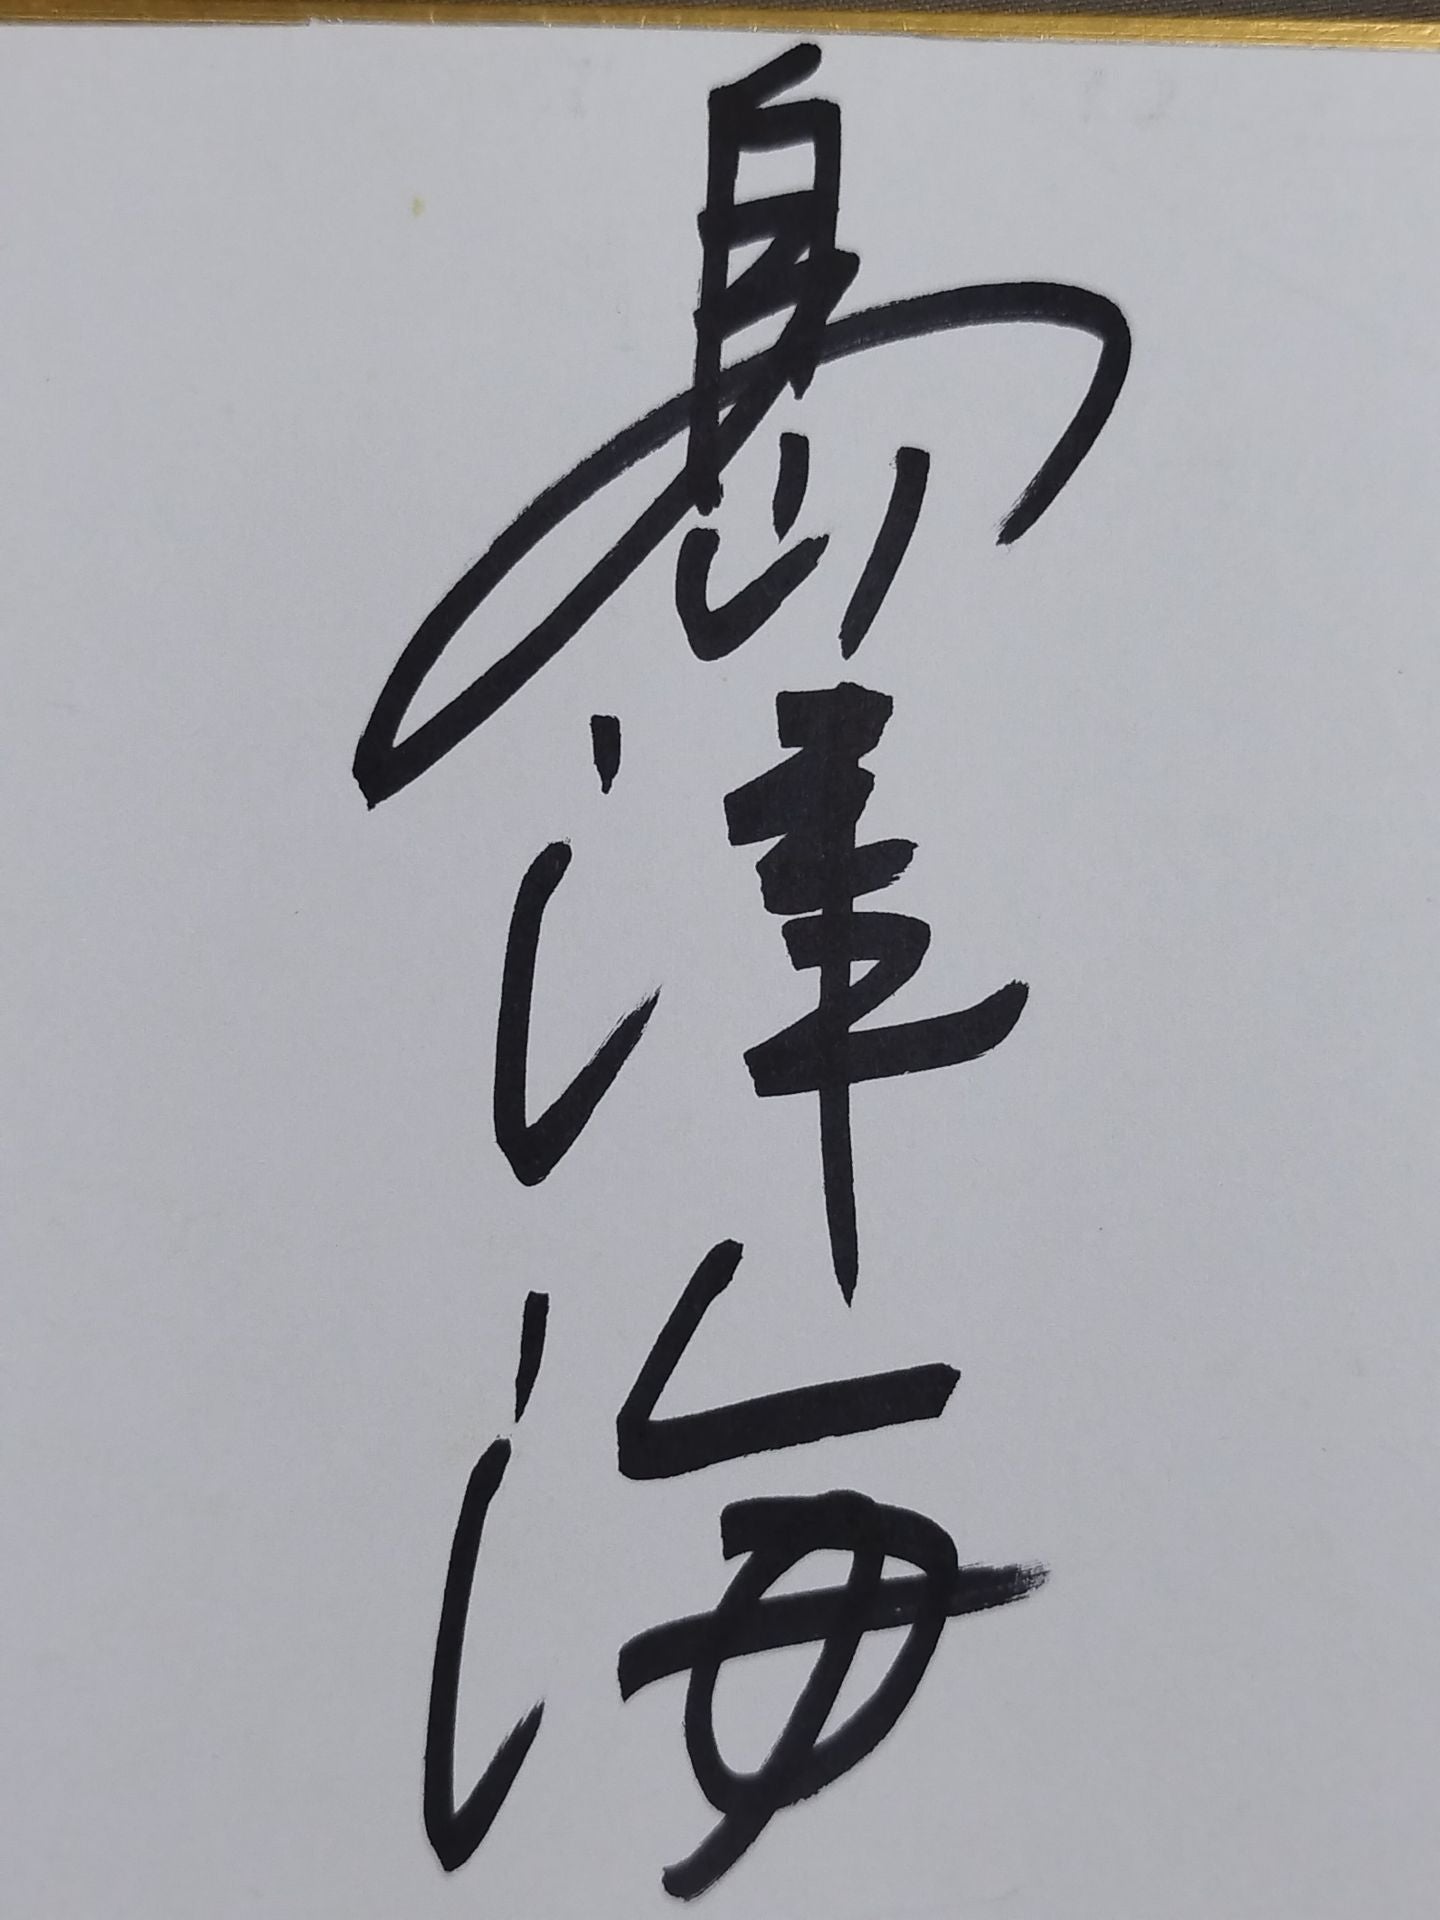 島津海